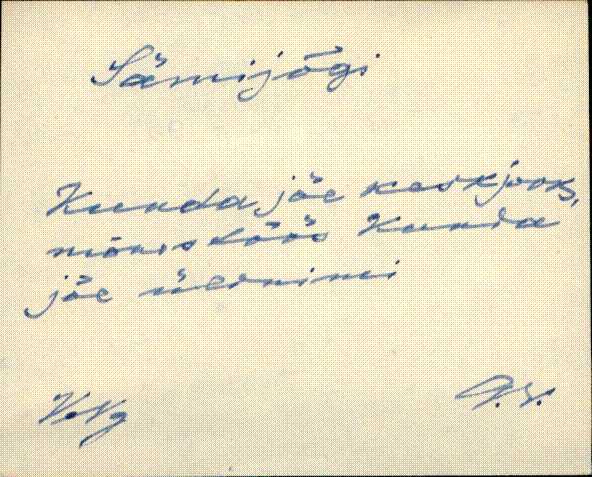 Sämijõgi
Kunda jõe keskjooks,
mõnes köös Kunda
jõe üldnimi
V.Ng